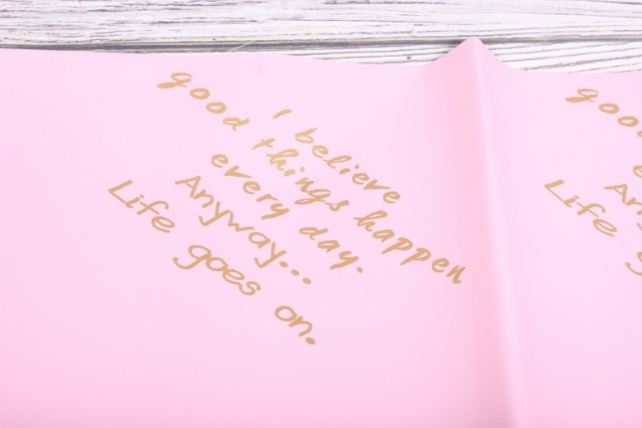 I believe
good things happen
every day.
Anyway...
Life goes on.
good
Life